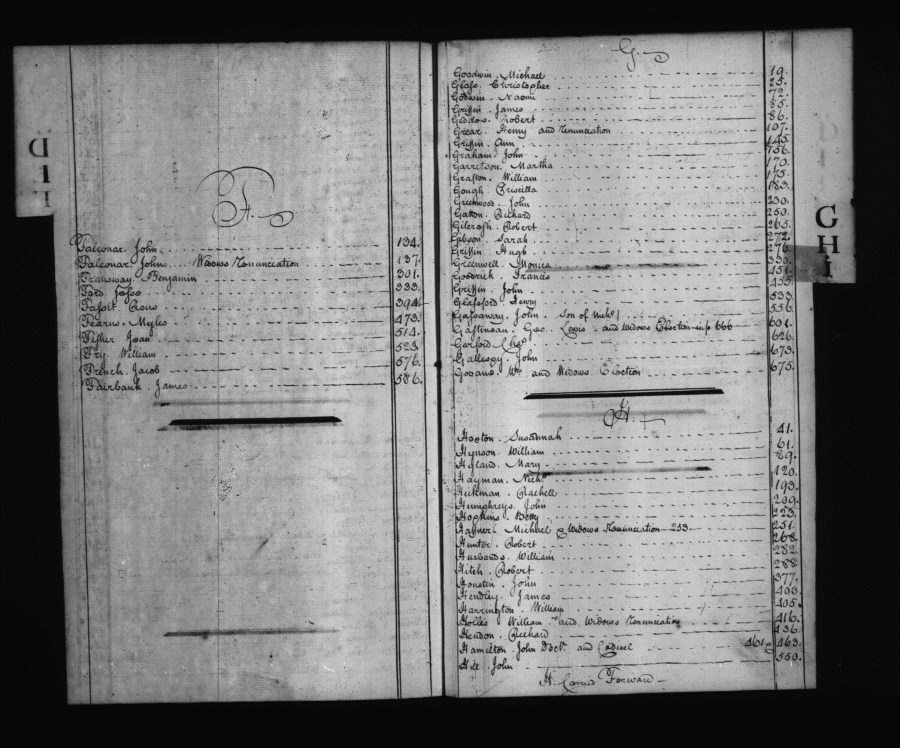 F.
Falconar. John. 134.
Falconar. John. Widows Renunciation 137.
Fransway Benjamin 301.
Ford Jesse 333.
394.
Fearns. Myles 473.
Fisher Joan 514.
Fry William 523.
French. Jacob 576.
Fairbank James 586.
G.
Goodwin. Michael 19.
Glass. Christopher 25.
Godwin. Naomi 72.
Griffin. James 85.
Geddes. Robert 86.
Grear. Henry and renunciation 107.
Griffin. Ann 145.
Graham. John 156.
Garretson. Martha 170.
Grafton. William 175.
Gough Priscilla 183.
Greenwood. John 230.
Gaton. Richard 250.
Gilcrash. Robert 263.
Gibson Sarah 272.
Griffin. Hugh 276.
Greenwell. Monica 330.
Goodrich. Francis 451.
Griffin. John 455.
Glassford Henry 533.
Gassaway. John. Son of Nichs. 556.
Gastineau. Geo. Lewis. and Widows Election in fo 666 601.
Garford Chas 626.
Gallespy. John 673.
Govane. Wm and Widows Election 675.
H.
Hopton. Susannah 41.
Hynson. William 61.
Hyland. Mary 89.
Hayman. Nichs 120.
Hickman. Rachell 193.
Humphreys. John 209.
Hopkins. Betty 223.
Haffner. Michael & Widows Renunciation 253 251.
Hunter. Robert 268.
Husbands. William 282.
Hitch. Robert 288.
Houstin. John 377.
Hendley. James 403.
Harrington. William 405.
Hollis William and Widows renunciation 416.
Hendon. Richard 436.
Hamilton. John Doctr. and Codicil 461 & 463.
Hill. John 550.
H. Carried Forward
G
H
I